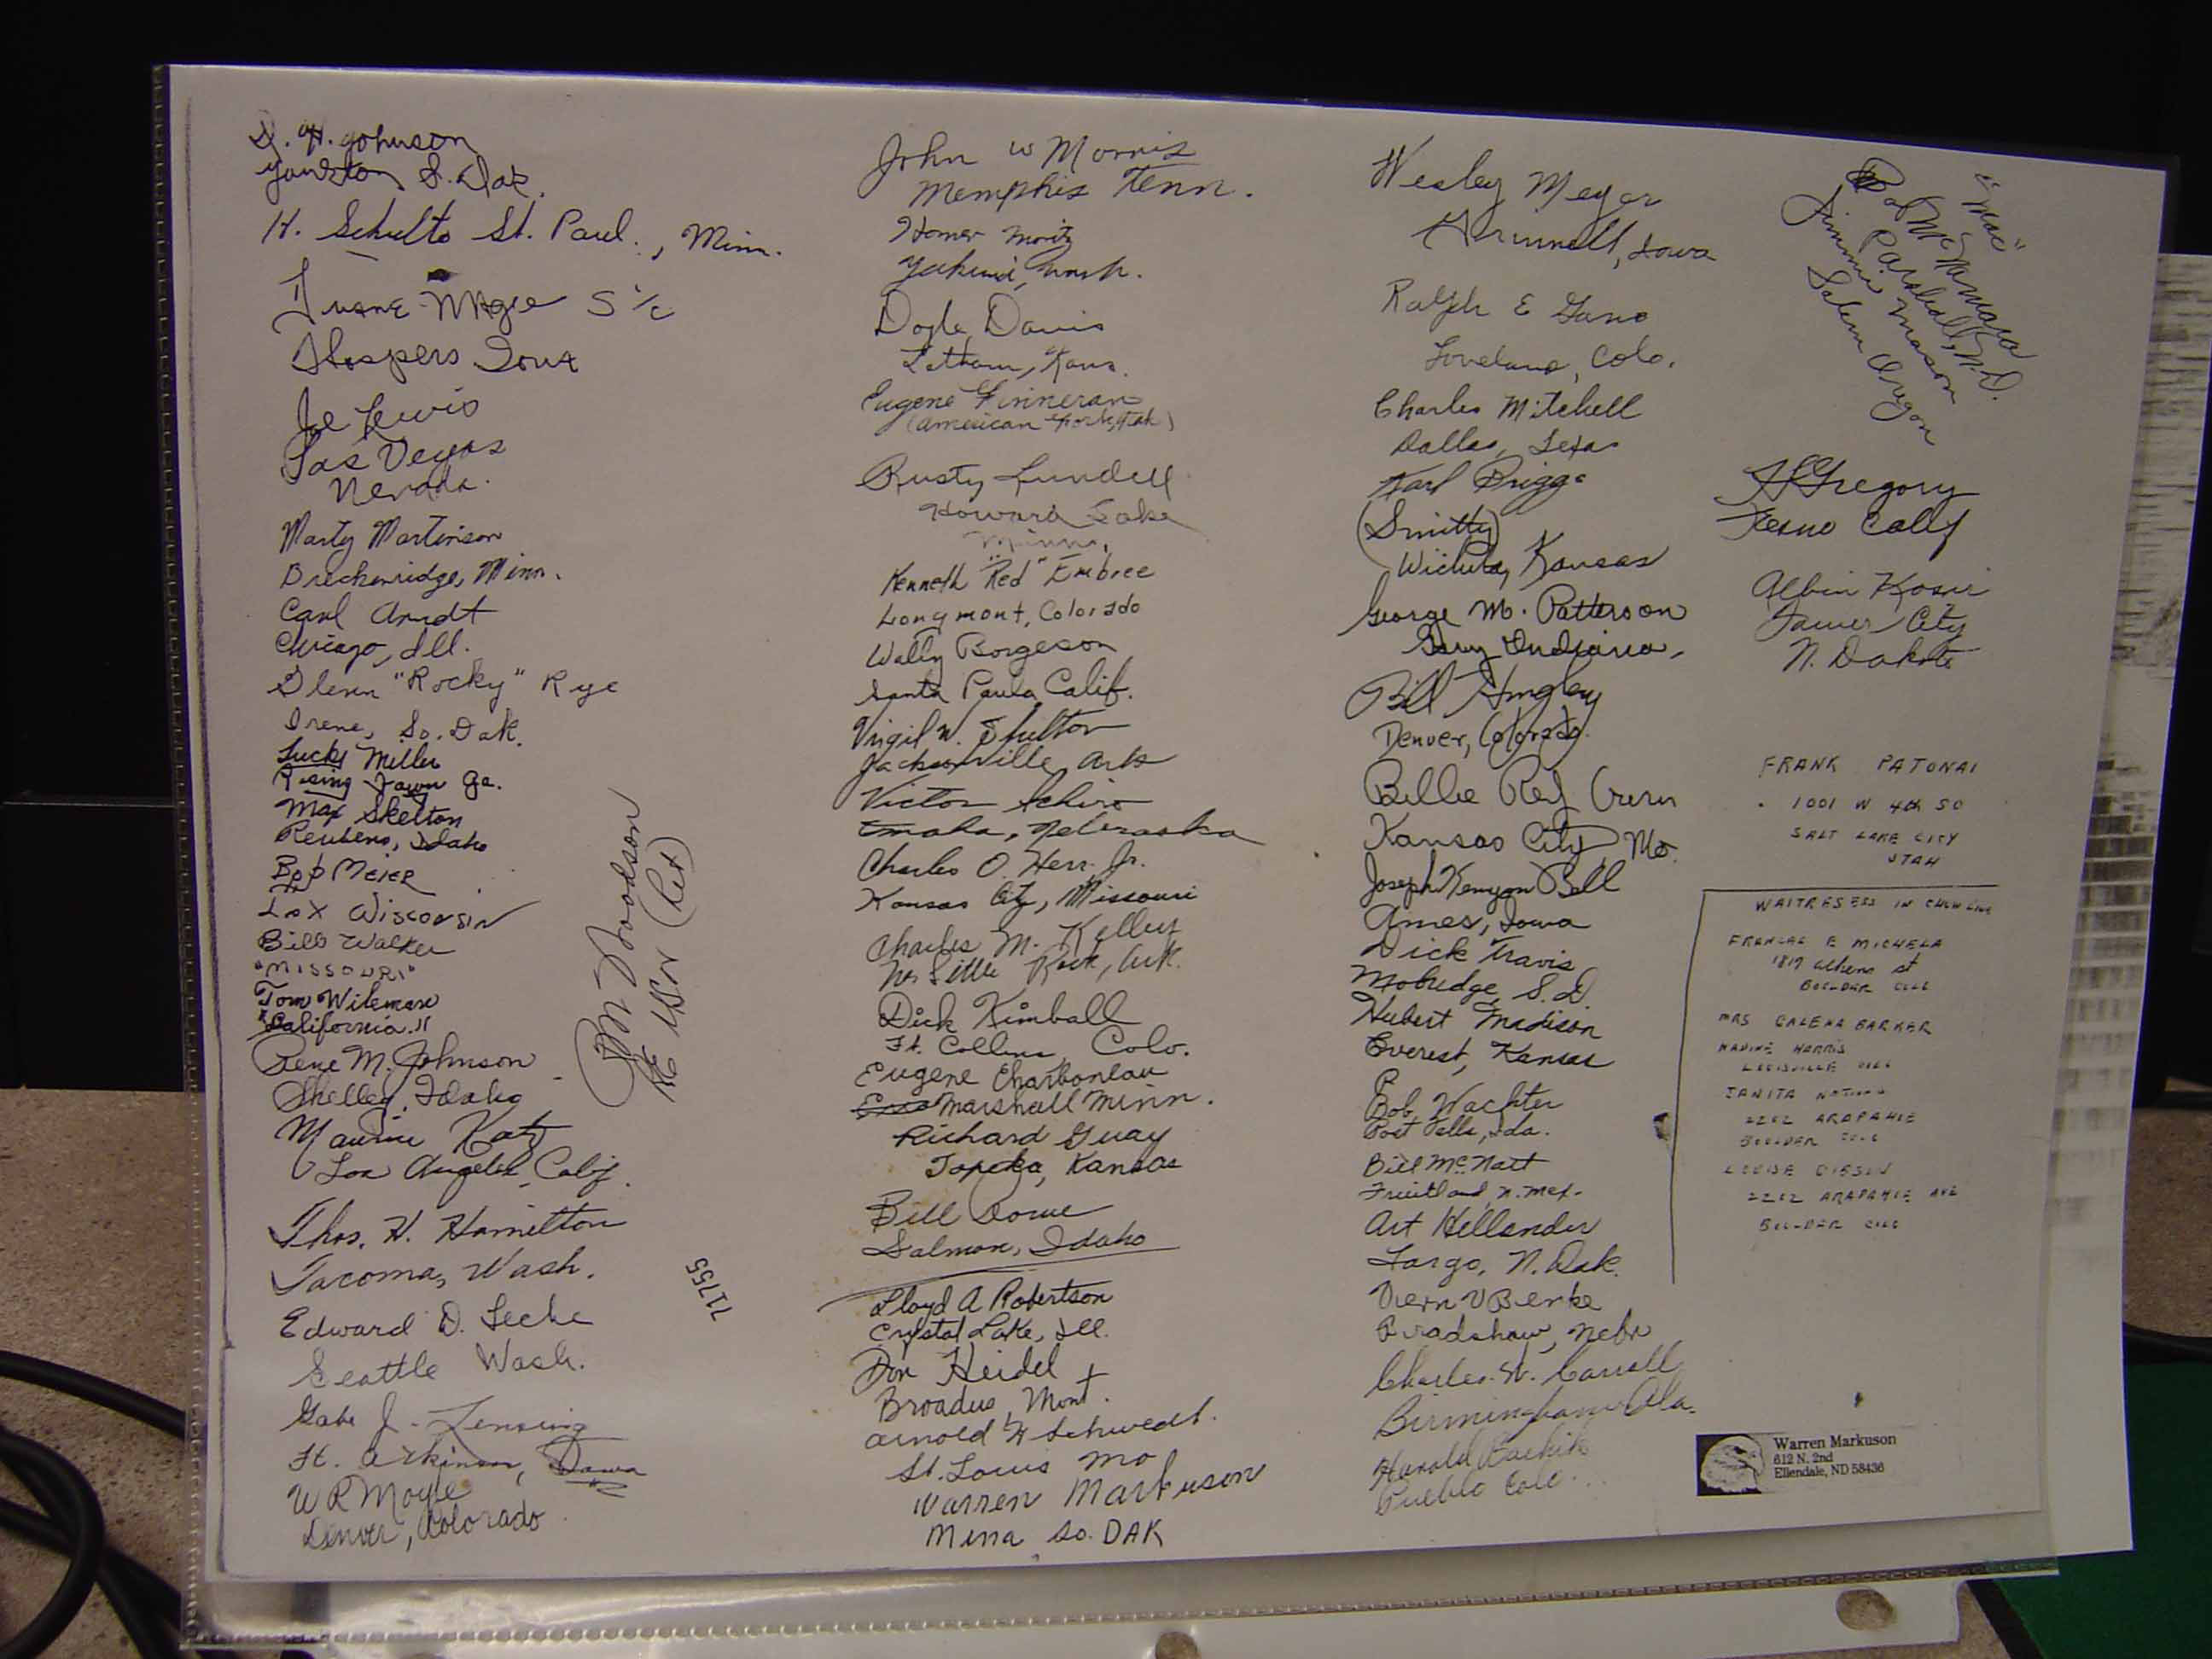 D. H. Johnson
Yankton S. Dak.
H. Schulte St. Paul., Minn.
Duane S 1/c
Hospers Iowa
Joe Lewis
Las Vegas
Nevada.
Marty Martinson
Breckenridge, Minn.
Carl Arndt
Chicago, Ill.
Glenn "Rocky" Rye
Irene, So. Dak.
Lucky Miller
Rising Fawn Ga.
Max Skelton
Reubens, Idaho
Bob Meier
Wisconsin
Bill Walker
"MISSOURI"
Tom Wileman
"California"
Rene M. Johnson
Shelley, Idaho
Maurice Katz
Los Angeles, Calif.
Thos. H. Hamilton
Tacoma, Wash.
Edward D. Leche
Seattle Wash.
Gabe J. Lensing
Ft. Atkinson, Iowa
W R Moyle
Denver, Colorado
Woodson
USN (Ret)
71755
John W Morris
Memphis Tenn.
Homer Moritz
Yakima, Wash.
Doyle Davis
Latham, Kans.
Eugene Finneran
(American Fork, Utah)
Rusty Lundell
Howard Lake
Minn.
Kenneth "Red" Embree
Longmont, Colorado
Wally Borgeson
Santa Paula, Calif.
Virgil W. Shelton
Jacksonville, Ark
Victor Schiro
Omaha, Nebraska
Charles O. Herr Jr.
Kansas City, Missouri
Charles M. Kelley
No. Little Rock, Ark.
Dick Kimball
Ft. Collins, Colo.
Eugene Charboneau
Marshall Minn.
Richard Guay
Topeka, Kansas
Bill Dowe
Salmon, Idaho
Lloyd A Robertson
Crystal Lake, Ill.
Don Heidel
Broadus, Mont.
Arnold H Schwedt.
St. Louis Mo
Warren Markuson
Mina So. DAK
Wesley Meyer
Grinnell, Iowa
Ralph E Gano
Loveland, Colo.
Charles Mitchell
Dallas, Texas
Karl Briggs
(Smitty)
Wichita, Kansas
George M. Patterson
Gary Indiana.
Bill Hingley
Denver, Colorado.
Billie Rey
Kansas City, Mo.
Joseph Kenyon Bell
Ames, Iowa
Dick Travis
Mobridge, S.D.
Hubert Madison
Everest, Kansas
Bob Wachter
Post Falls, Ida.
Bill McNatt
Fruitland n. mex.
Art Hellander
Fargo, N. Dak.
Vern V Benke
Bradshaw, Nebr
Charles W. Carroll
Birmingham Ala.
Harold
Pueblo Colo.
"Mac"
Pat McNamara
Parshall, N.D.
Jimmie Mason
Salem Oregon
Gregory
Fresno Calif
Albin Kosir
Tower City
N. Dakota
FRANK PATONAI
1001 W 4th SO
SALT LAKE CITY
UTAH
WAITRESESS IN CHOW LINE
FRANCAE E MICHELA
1819 Athens st
BOULDER COLO
MRS GALENA BARKER
NADINE HARRIS
LOUISVILLE COLO
JANITA
2202 ARAPAHOE
BOULDER COLO
LOUISE GIBSON
2202 ARAPAHOE AVE
BOULDER COLO
Warren Markuson
612 N. 2nd
Ellendale, ND 58436